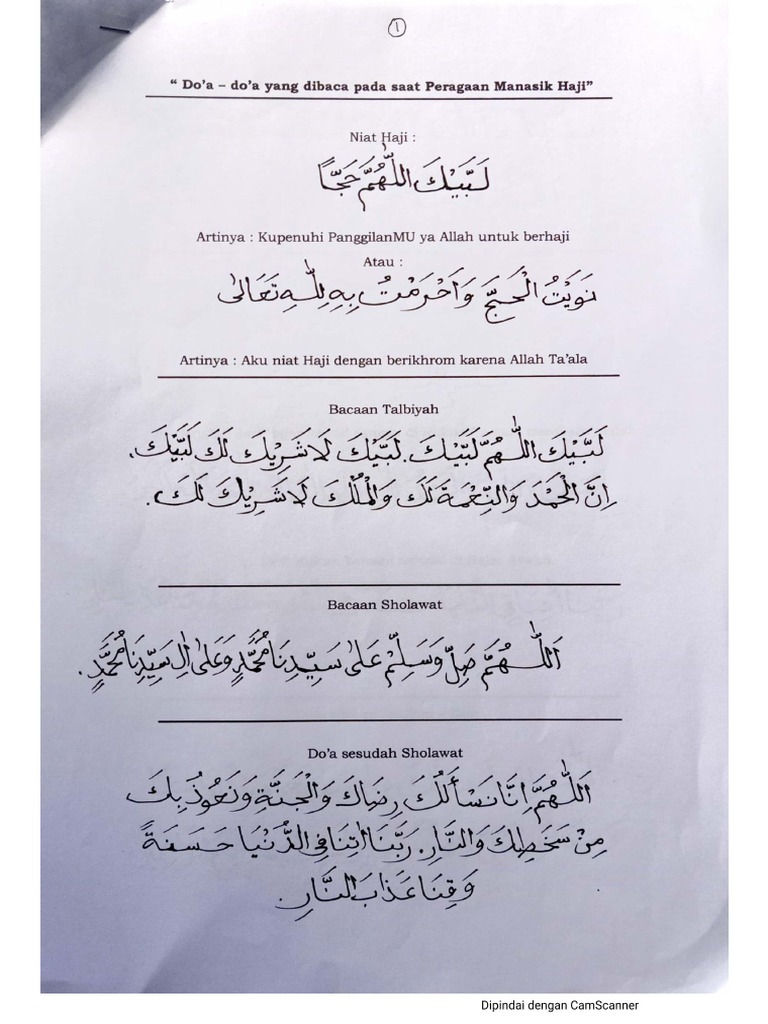 1
“ Do’a – do’a yang dibaca pada saat Peragaan Manasik Haji”
Niat Haji :
لَبَّيْكَ اللّٰهُمَّ حَجًّا
Artinya : Kupenuhi PanggilanMU ya Allah untuk berhaji
Atau :
نَوَيْتُ الْحَجَّ وَاَحْرَمْتُ بِهِ لِلّٰهِ تَعَالٰى
Artinya : Aku niat Haji dengan berikhrom karena Allah Ta’ala
Bacaan Talbiyah
لَبَّيْكَ اللّٰهُمَّ لَبَّيْكَ. لَبَّيْكَ لَا شَرِيْكَ لَكَ لَبَّيْكَ.
اِنَّ الْحَمْدَ وَالنِّعْمَةَ لَكَ وَالْمُلْكَ لَا شَرِيْكَ لَكَ.
Bacaan Sholawat
اَللّٰهُمَّ صَلِّ وَسَلِّمْ عَلٰى سَيِّدِنَا مُحَمَّدٍ وَعَلٰى اٰلِ سَيِّدِنَا مُحَمَّدٍ.
Do’a sesudah Sholawat
اَللّٰهُمَّ اِنَّا نَسْأَلُكَ رِضَاكَ وَالْجَنَّةِ وَنَعُوْذُ بِكَ
مِنْ سَخَطِكَ وَالنَّارِ. رَبَّنَا اٰتِنَا فِى الدُّنْيَا حَسَنَةً
وَقِنَا عَذَابَ النَّارِ.
Dipindai dengan CamScanner